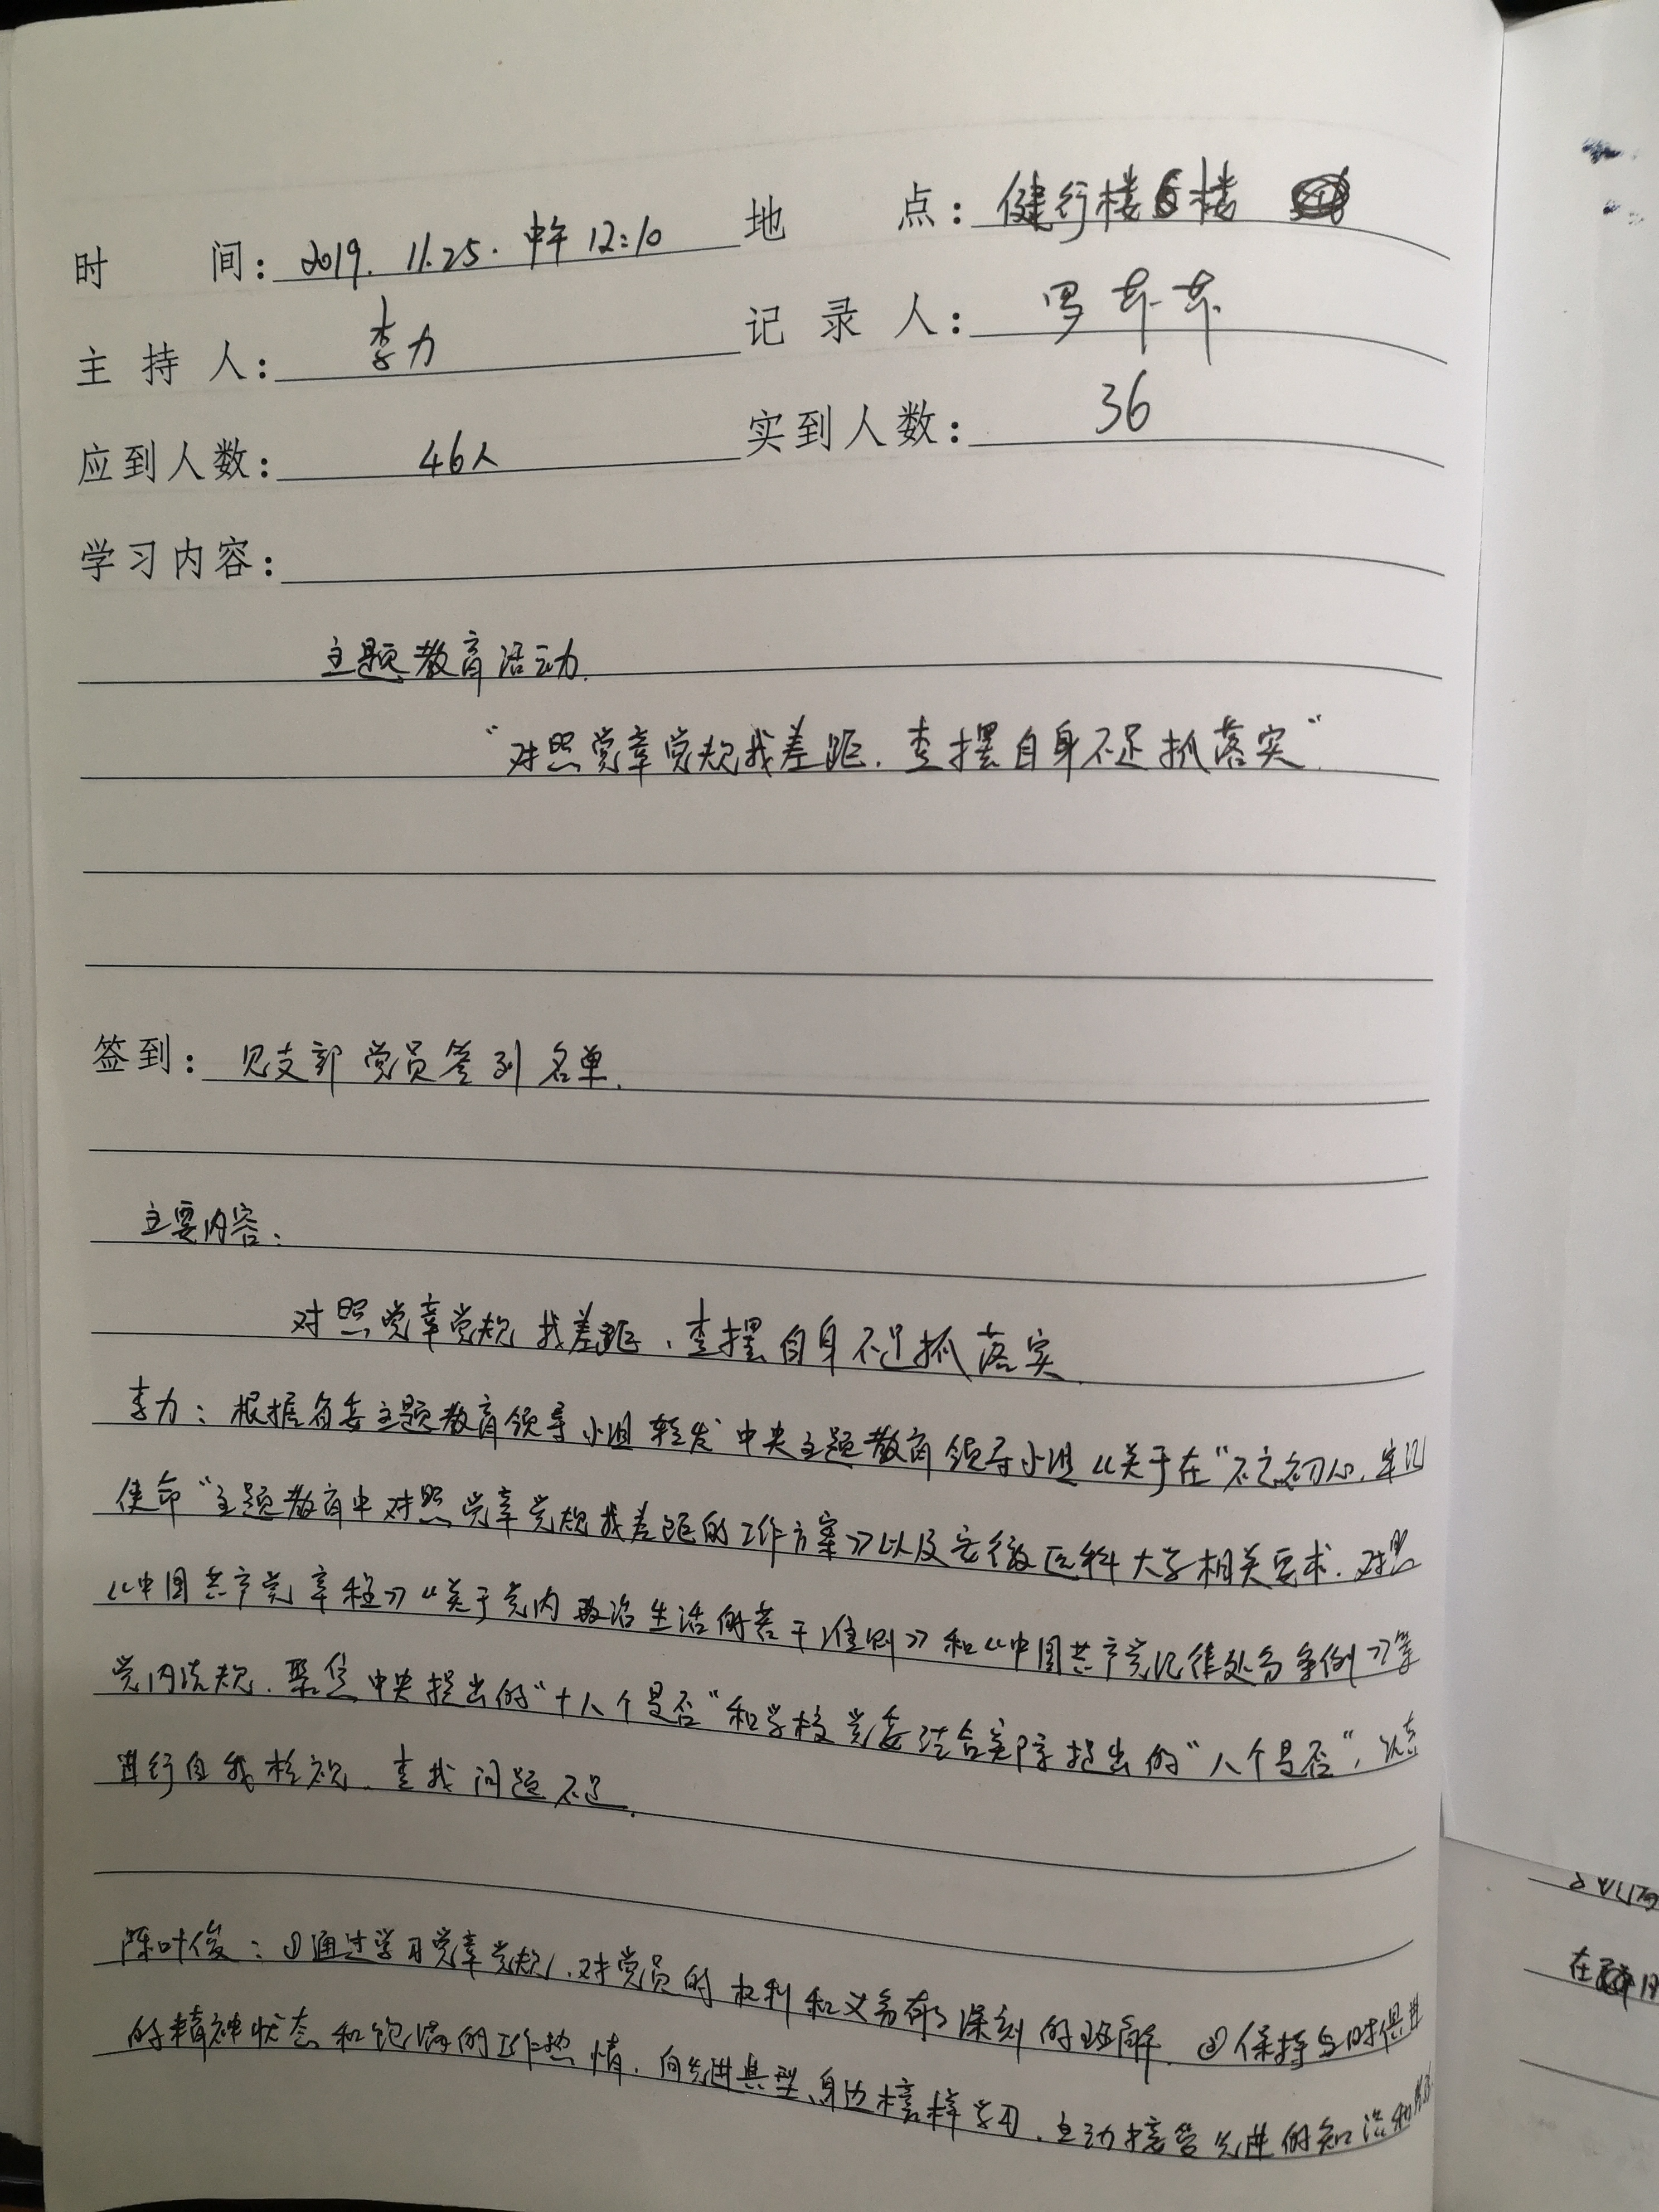 时 间: 2019. 11.25. 中午 12:10 地 点: 健行楼6楼
主 持 人: 李力 记 录 人: 罗芹芹
应到人数: 46人 实到人数: 36
学习内容:
主题教育活动.
“对照党章党规找差距，查摆自身不足抓落实”.
签到: 见支部党员签到名单.
主要内容:
对照党章党规找差距，查摆自身不足抓落实.
李力: 根据省委主题教育领导小组转发“中央主题教育领导小组《关于在“不忘初心，牢记
使命”主题教育中对照党章党规找差距的工作方案》以及安徽医科大学相关要求，对照
《中国共产党章程》《关于党内政治生活的若干准则》和《中国共产党纪律处分条例》等
党内法规，聚焦中央提出的“十八个是否”和学校党委结合实际提出的“八个是否”，认真
进行自我检视，查找问题不足.
陈叶俊: ①通过学习党章党规，对党员的权利和义务有了深刻的理解. ②保持与时俱进
的精神状态和饱满的工作热情，向先进典型、身边榜样学习，主动接受先进的知识和
在